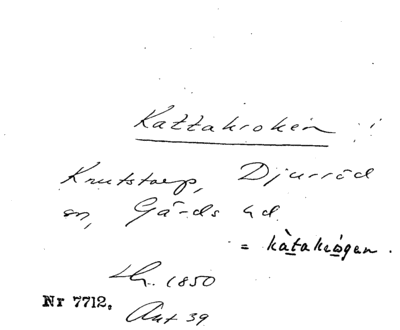 Kattakroken
Knutstorp, Djurröd
sn, Gärds hd
= kàtakrógen.
Lh. 1850
Nr 7712.
Ant 39